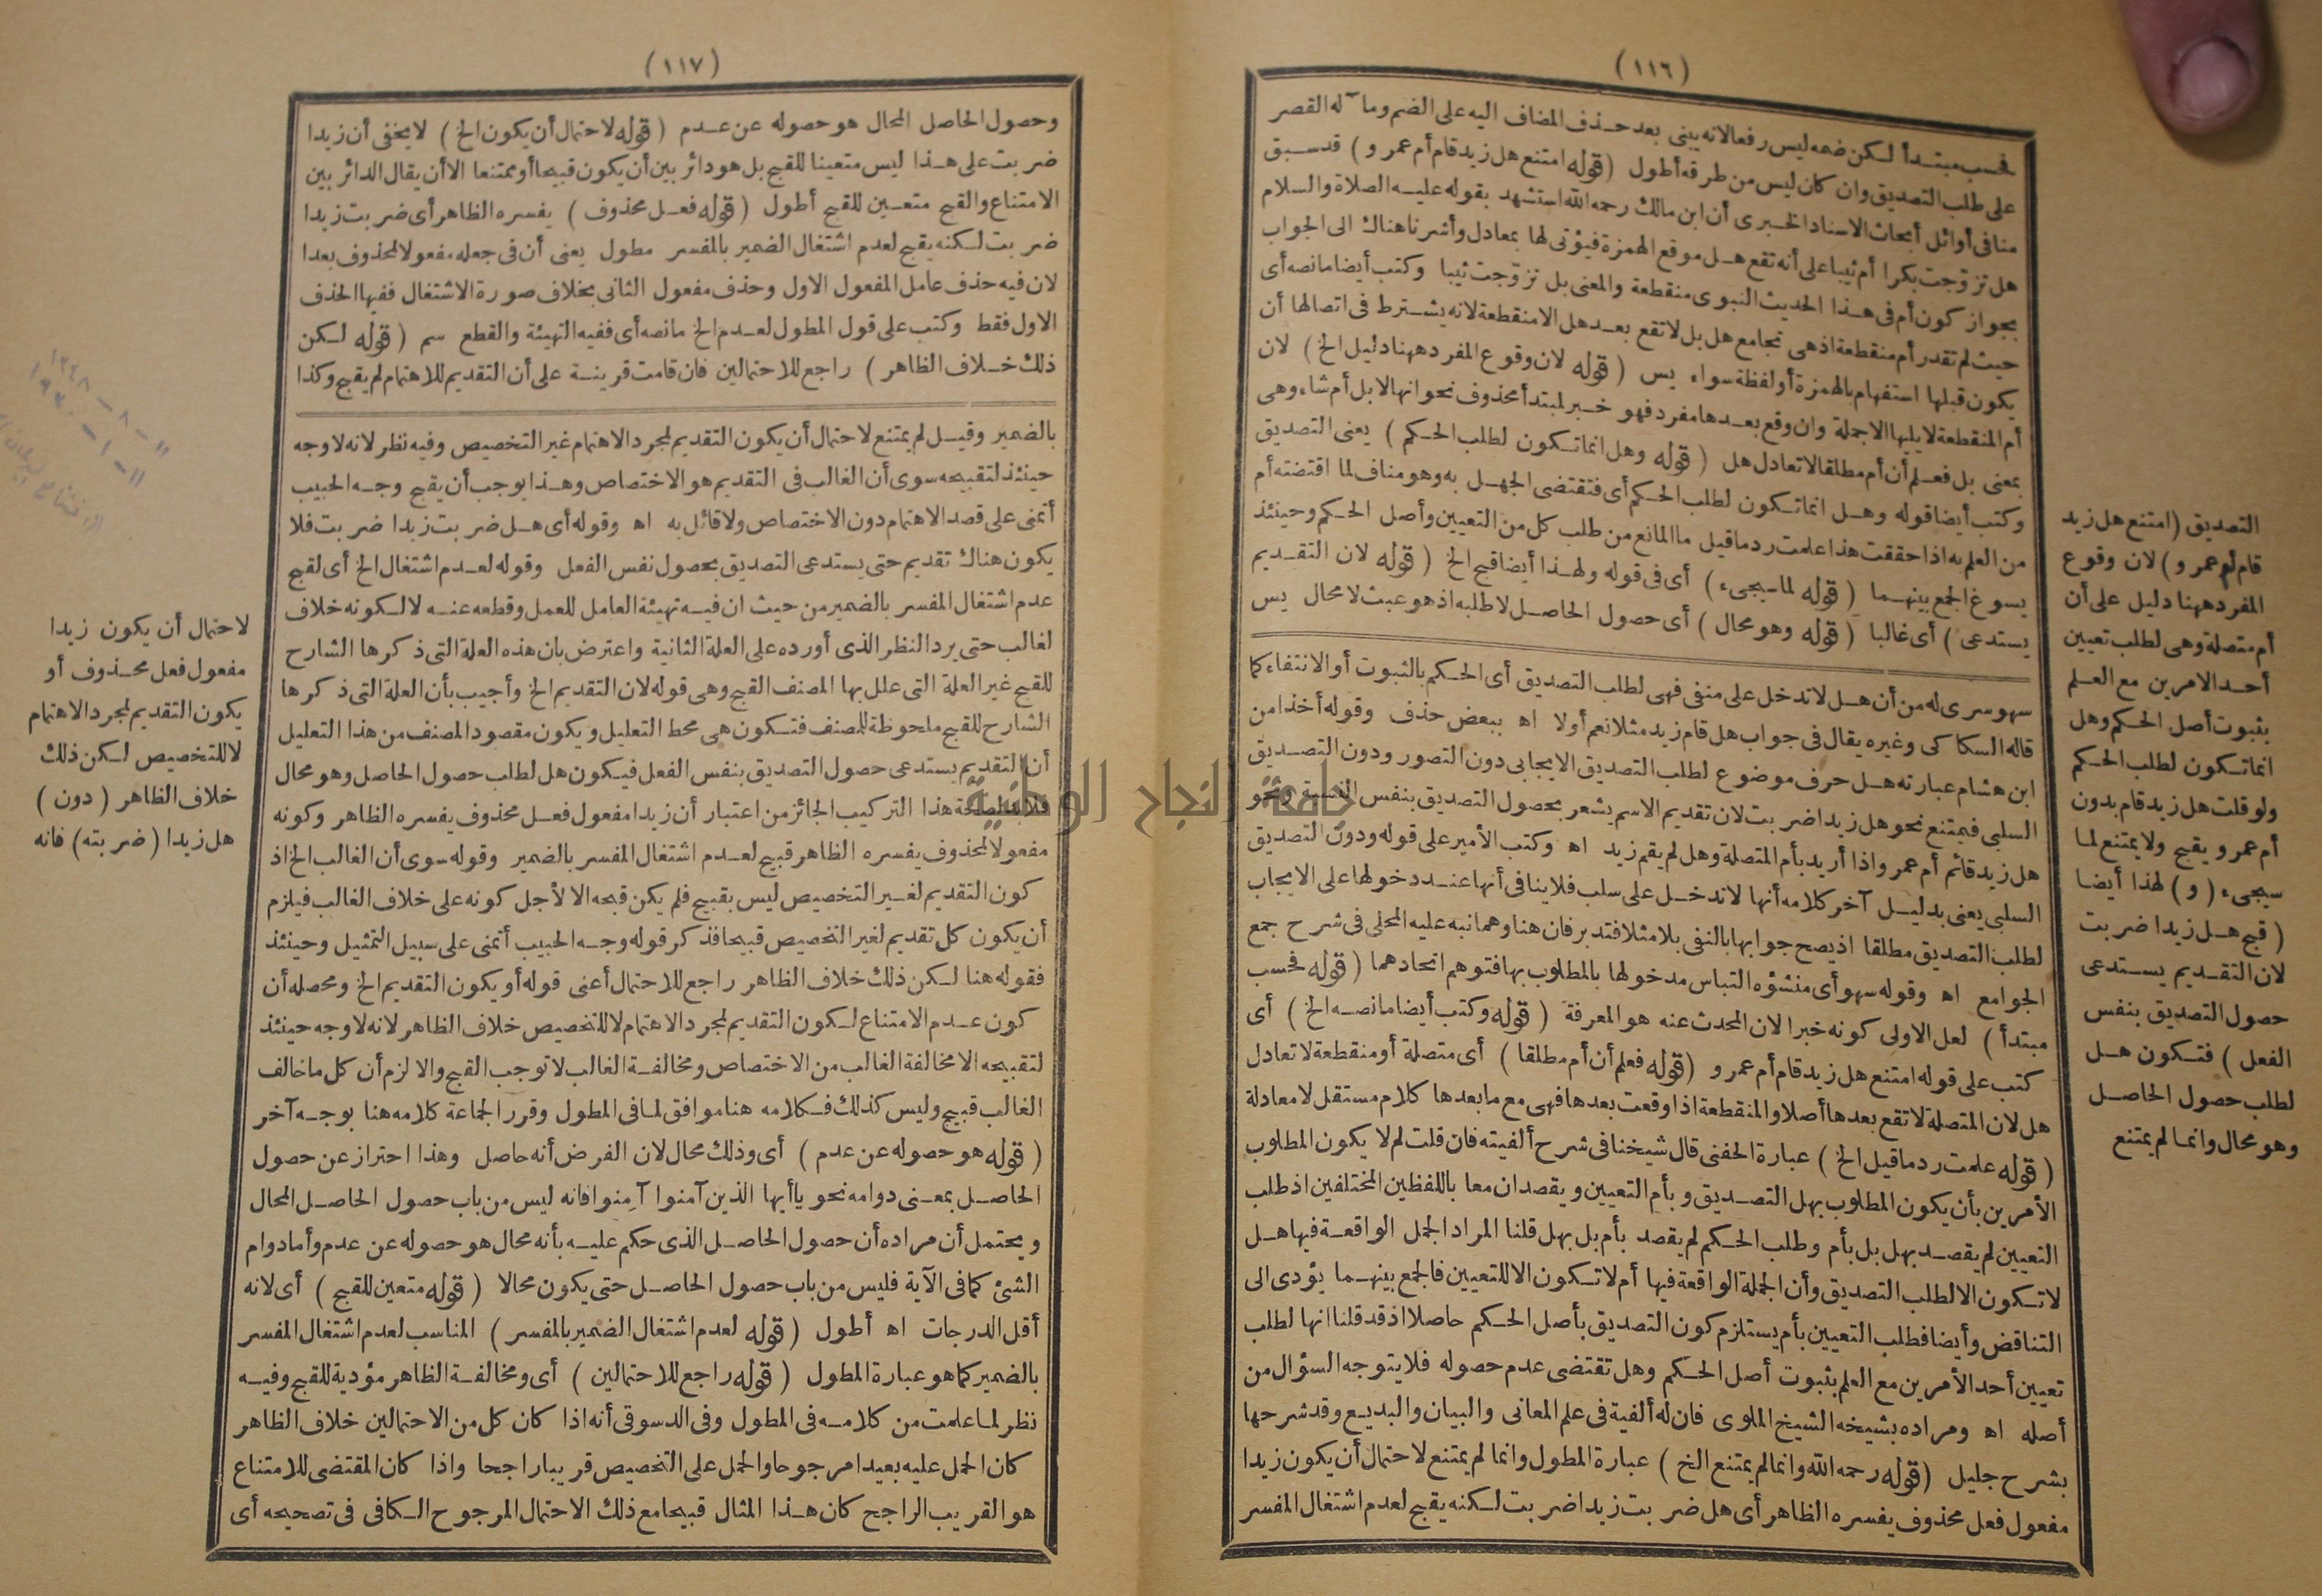 (١١٦)
فحسب مبتدأ لكن ضمه ليس رفعا لانه يبنى بعد حذف المضاف اليه على الضم وما له القصر
على طلب التصديق وان كان ليس من طرقه أطول (قوله امتنع هل زيد قام أم عمرو) قد سبق
منا في أوائل أبحاث الاسناد الخبرى أن ابن مالك رحمه الله استشهد بقوله عليه الصلاة والسلام
هل تزوّجت بكرا أم ثيبا على أنه تقع هل موقع الهمزة فيؤتى لها بمعادل وأشرنا هناك الى الجواب
بجواز كون أم فى هذا الحديث النبوى منقطعة والمعنى بل تزوّجت ثيبا وكتب أيضا ما نصه أى
حيث لم تقدر أم منقطعة اذ هى تجامع هل بل لا تقع بعد هل الا منقطعة لانه يشترط فى اتصالها أن
يكون قبلها استفهام بالهمزة أو لفظة سواء يس (قوله لان وقوع المفرد ههنا دليل الخ) لان
أم المنقطعة لا يليها الا جملة وان وقع بعدها مفرد فهو خبر لمبتدأ محذوف نحو انها لابل أم شاء وهى
بمعنى بل فعلم أن أم مطلقا لا تعادل هل (قوله وهل انما تكون لطلب الحكم) يعنى التصديق
وكتب أيضا قوله وهل انما تكون لطلب الحكم أى فتقتضى الجهل به وهو مناف لما اقتضته أم
من العلم به اذا حققت هذا علمت رد ما قيل ما المانع من طلب كل من التعيين وأصل الحكم وحينئذ
يسوغ الجمع بينهما (قوله لما سيجىء) أى فى قوله ولهذا أيضا قبح الخ (قوله لان التقديم
يستدعى) أى غالبا (قوله وهو محال) أى حصول الحاصل لا طلبه اذ هو عبث لا محال يس
سهو سرى له من أن هل لا تدخل على منفى فهى لطلب التصديق أى الحكم بالثبوت أو الانتفاء كما
قاله السكاكى وغيره يقال فى جواب هل قام زيد مثلا نعم أولا اه ببعض حذف وقوله أخذا من
ابن هشام عبارته هل حرف موضوع لطلب التصديق الايجابى دون التصور ودون التصديق
السلبى فيمتنع نحو هل زيدا ضربت لان تقديم الاسم يشعر بحصول التصديق بنفس النسبة ونحو
هل زيد قائم أم عمرو اذا أريد بأم المتصلة وهل لم يقم زيد اه وكتب الأمير على قوله ودون التصديق
السلبى يعنى بدليل آخر كلامه أنها لا تدخل على سلب فلا ينافى أنها عند دخولها على الايجاب
لطلب التصديق مطلقا اذ يصح جوابها بالنفى بلا مثلا فتدبر فان هنا وهما نبه عليه المحلى فى شرح جمع
الجوامع اه وقوله سهو أى منشؤه التباس مدخولها بالمطلوب بها فتوهم اتحادهما (قوله فحسب
مبتدأ) لعل الاولى كونه خبرا لان المحدث عنه هو المعرفة (قوله وكتب أيضا ما نصه الخ) أى
كتب على قوله امتنع هل زيد قام أم عمرو (قوله فعلم أن أم مطلقا) أى متصلة أو منقطعة لا تعادل
هل لان المتصلة لا تقع بعدها أصلا والمنقطعة اذا وقعت بعدها فهى مع ما بعدها كلام مستقل لا معادلة
(قوله علمت رد ما قيل الخ) عبارة الحفنى قال شيخنا فى شرح ألفيته فان قلت لم لا يكون المطلوب
الأمرين بأن يكون المطلوب بهل التصديق وبأم التعيين ويقصدان معا باللفظين المختلفين اذ طلب
التعيين لم يقصد بهل بل بأم وطلب الحكم لم يقصد بأم بل بهل قلنا المراد الجمل الواقعة فيها هل
لا تكون الا لطلب التصديق وأن الجملة الواقعة فيها أم لا تكون الا للتعيين فالجمع بينهما يؤدى الى
التناقض وأيضا فطلب التعيين بأم يستلزم كون التصديق بأصل الحكم حاصلا اذ قد قلنا انها لطلب
تعيين أحد الأمرين مع العلم بثبوت أصل الحكم وهل تقتضى عدم حصوله فلا يتوجه السؤال من
أصله اه ومراده بشيخه الشيخ الملوى فان له ألفية فى علم المعانى والبيان والبديع وقد شرحها
بشرح جليل (قوله رحمه الله وانما لم يمتنع الخ) عبارة المطول وانما لم يمتنع لاحتمال أن يكون زيدا
مفعول فعل محذوف يفسره الظاهر أى هل ضربت زيدا ضربت لكنه يقبح لعدم اشتغال المفسر
التصديق (امتنع هل زيد
قام أم عمرو) لان وقوع
المفرد ههنا دليل على أن
أم متصلة وهى لطلب تعيين
أحد الامرين مع العلم
بثبوت أصل الحكم وهل
انما تكون لطلب الحكم
ولو قلت هل زيد قام بدون
أم عمرو يقبح ولا يمتنع لما
سيجىء (و) لهذا أيضا
(قبح هل زيدا ضربت
لان التقديم يستدعى
حصول التصديق بنفس
الفعل) فتكون هل
لطلب حصول الحاصل
وهو محال وانما لم يمتنع
(١١٧)
وحصول الحاصل المحال هو حصوله عن عدم (قوله لاحتمال أن يكون الخ) لا يخفى أن زيدا
ضربت على هذا ليس متعينا للقبح بل هو دائر بين أن يكون قبيحا أو ممتنعا الا أن يقال الدائر بين
الامتناع والقبح متعين للقبح أطول (قوله فعل محذوف) يفسره الظاهر أى ضربت زيدا
ضربت لكنه يقبح لعدم اشتغال الضمير بالمفسر مطول يعنى أن فى جعله مفعولا لمحذوف بعدا
لان فيه حذف عامل المفعول الاول وحذف مفعول الثانى بخلاف صورة الاشتغال ففيها الحذف
الاول فقط وكتب على قول المطول لعدم الخ ما نصه أى ففيه التهيئة والقطع سم (قوله لكن
ذلك خلاف الظاهر) راجع للاحتمالين فان قامت قرينة على أن التقديم للاهتمام لم يقبح وكذا
بالضمير وقيل لم يمتنع لاحتمال أن يكون التقديم لمجرد الاهتمام غير التخصيص وفيه نظر لانه لا وجه
حينئذ لتقبيحه سوى أن الغالب فى التقديم هو الاختصاص وهذا يوجب أن يقبح وجه الحبيب
أتمنى على قصد الاهتمام دون الاختصاص ولا قائل به اه وقوله أى هل ضربت زيدا ضربت فلا
يكون هناك تقديم حتى يستدعى التصديق بحصول نفس الفعل وقوله لعدم اشتغال الخ أى لقبح
عدم اشتغال المفسر بالضمير من حيث ان فيه تهيئة العامل للعمل وقطعه عنه لا لكونه خلاف
لغالب حتى يرد النظر الذى أورده على العلة الثانية واعترض بان هذه العلة التى ذكرها الشارح
للقبح غير العلة التى علل بها المصنف القبح وهى قوله لان التقديم الخ وأجيب بأن العلة التى ذكرها
الشارح للقبح ملحوظة للمصنف فتكون هى محط التعليل ويكون مقصود المصنف من هذا التعليل
أن التقديم يستدعى حصول التصديق بنفس الفعل فيكون هل لطلب حصول الحاصل وهو محال
هذا التركيب الجائز من اعتبار أن زيدا مفعول فعل محذوف يفسره الظاهر وكونه
مفعولا لمحذوف يفسره الظاهر قبيح لعدم اشتغال المفسر بالضمير وقوله سوى أن الغالب الخ اذ
كون التقديم لغير التخصيص ليس بقبيح فلم يكن قبحه الا لأجل كونه على خلاف الغالب فيلزم
أن يكون كل تقديم لغير التخصيص قبيحا فذكر قوله وجه الحبيب أتمنى على سبيل التمثيل وحينئذ
فقوله هنا لكن ذلك خلاف الظاهر راجع للاحتمال أعنى قوله أو يكون التقديم الخ ومحصله أن
كون عدم الامتناع لكون التقديم لمجرد الاهتمام لا للتخصيص خلاف الظاهر لانه لا وجه حينئذ
لتقبيحه الا مخالفة الغالب من الاختصاص ومخالفة الغالب لا توجب القبح والا لزم أن كل ما خالف
الغالب قبيح وليس كذلك فكلامه هنا موافق لما فى المطول وقرر الجماعة كلامه هنا بوجه آخر
(قوله هو حصوله عن عدم) أى وذلك محال لان الفرض أنه حاصل وهذا احتراز عن حصول
الحاصل بمعنى دوامه نحو يا أيها الذين آمنوا آمنوا فانه ليس من باب حصول الحاصل المحال
ويحتمل أن مراده أن حصول الحاصل الذى حكم عليه بأنه محال هو حصوله عن عدم وأما دوام
الشئ كما فى الآية فليس من باب حصول الحاصل حتى يكون محالا (قوله متعين للقبح) أى لانه
أقل الدرجات اه أطول (قوله لعدم اشتغال الضمير بالمفسر) المناسب لعدم اشتغال المفسر
بالضمير كما هو عبارة المطول (قوله راجع للاحتمالين) أى ومخالفة الظاهر مؤدية للقبح وفيه
نظر لما علمت من كلامه فى المطول وفى الدسوقى أنه اذا كان كل من الاحتمالين خلاف الظاهر
كان الحمل عليه بعيدا مرجوحا والحمل على التخصيص قريبا راجحا واذا كان المقتضى للامتناع
هو القريب الراجح كان هذا المثال قبيحا مع ذلك الاحتمال المرجوح الكافى فى تصحيحه أى
لاحتمال أن يكون زيدا
مفعول فعل محذوف أو
يكون التقديم لمجرد الاهتمام
لا للتخصيص لكن ذلك
خلاف الظاهر (دون)
هل زيدا (ضربته) فانه
جامعة النجاح الوطنية